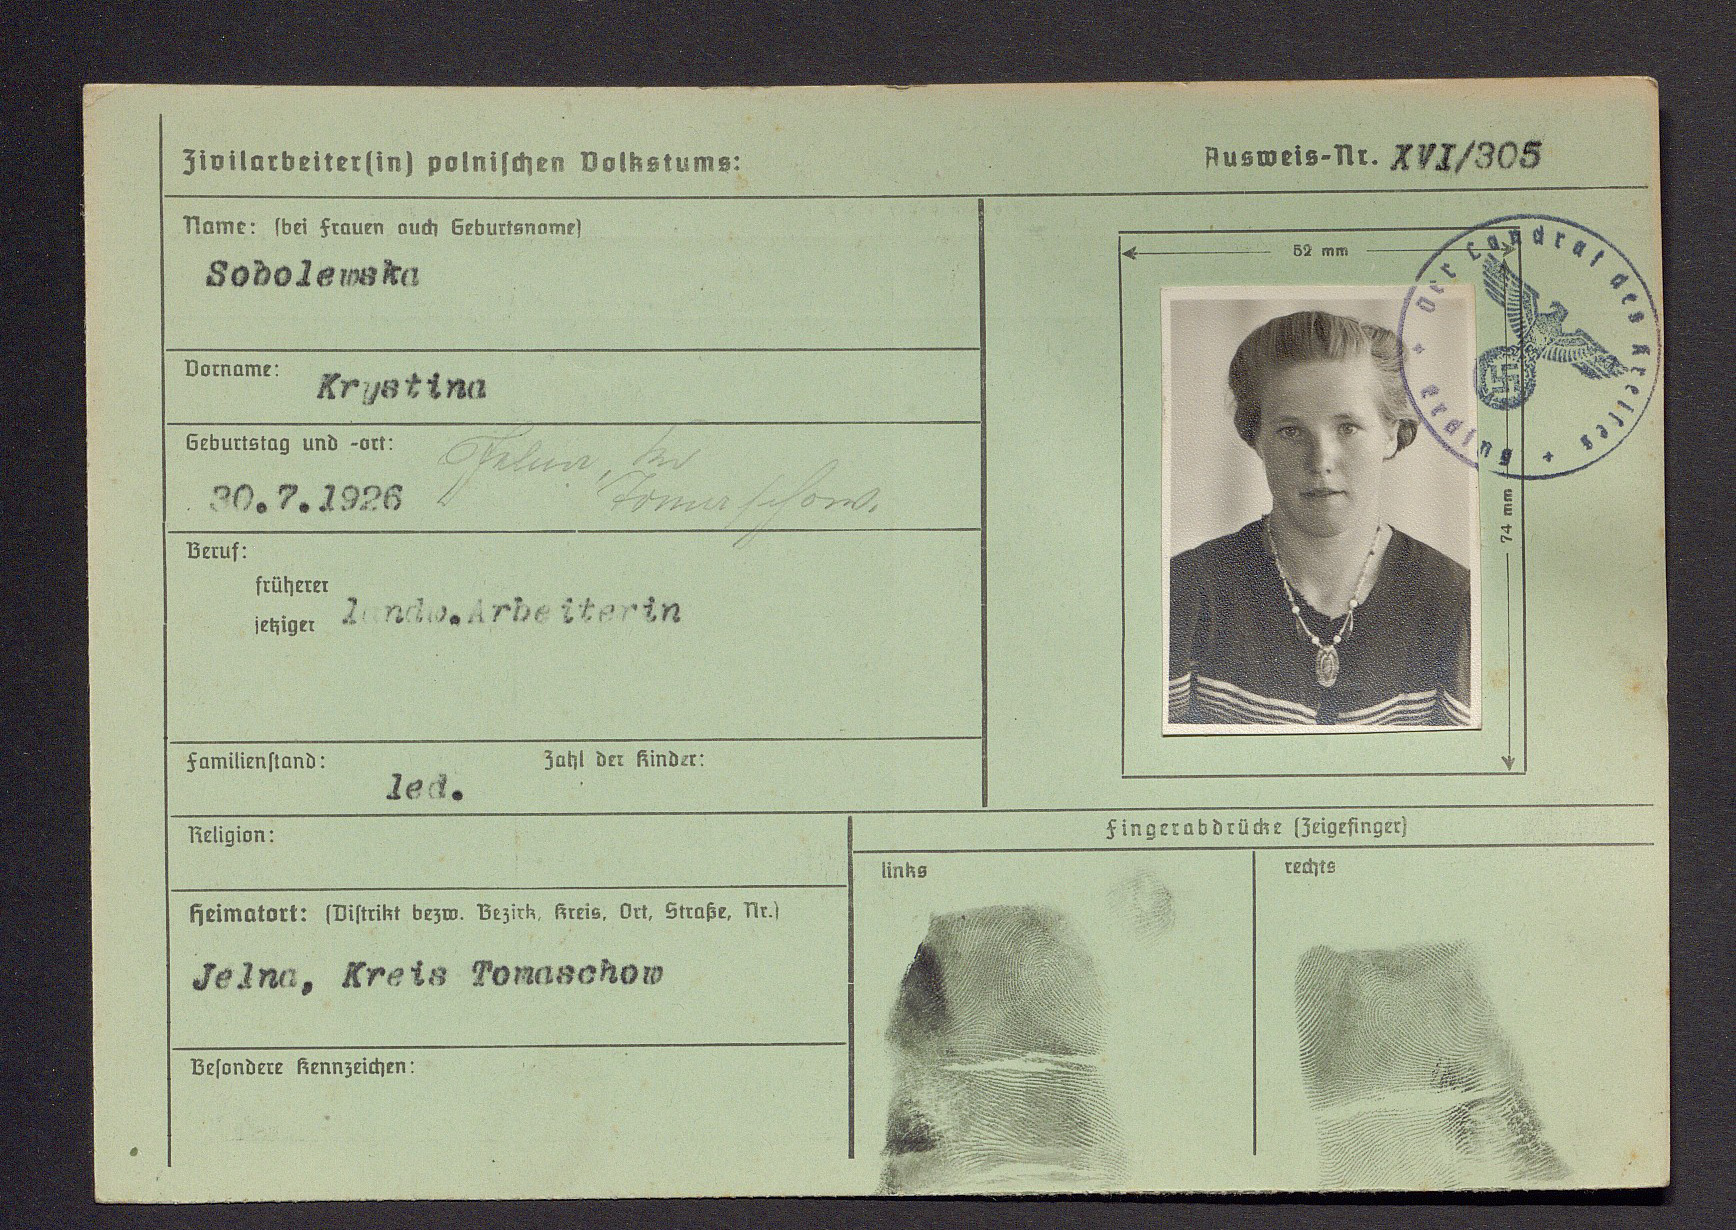 Zivilarbeiter(in) polnischen Volkstums:
Ausweis-Nr. XVI/305
Name: (bei Frauen auch Geburtsname)
Sobolewska
Vorname: Krystina
Geburtstag und -ort:
Jelna, Kr.
Tomaschow.
30.7.1926
Beruf:
früherer
jetziger landw.Arbeiterin
Familienstand: led. Zahl der Kinder:
Religion:
Heimatort: (Distrikt bezw. Bezirk, Kreis, Ort, Straße, Nr.)
Jelna, Kreis Tomaschow
Besondere Kennzeichen:
52 mm
74 mm
Der Landrat des Kreises
Fingerabdrücke (Zeigefinger)
links
rechts